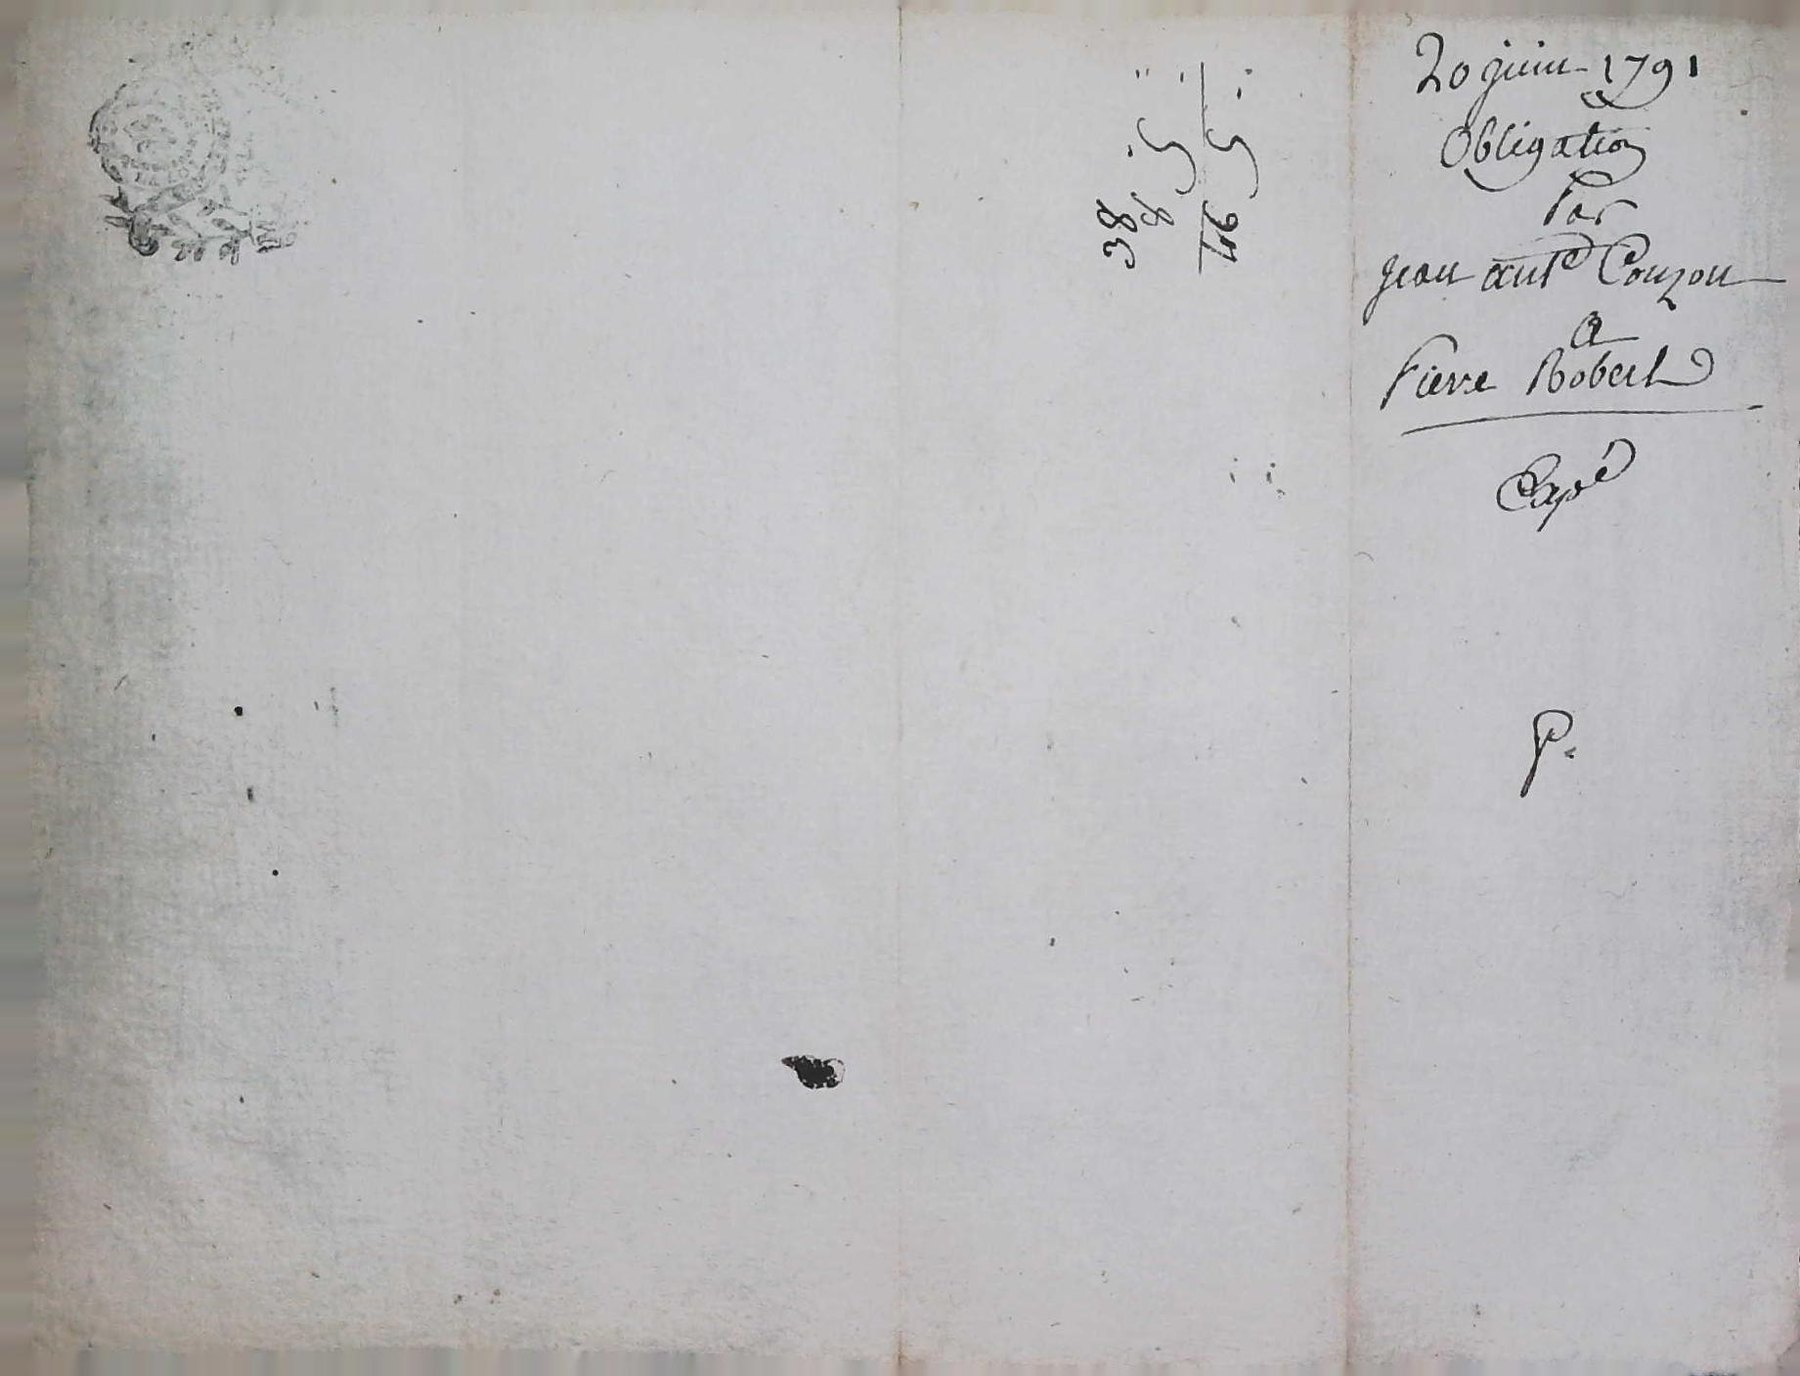 20 juin 1791
Obligation
Par
jean ant^e Couzon
a
Pierre Robert
Expé
38
8
LA LOI